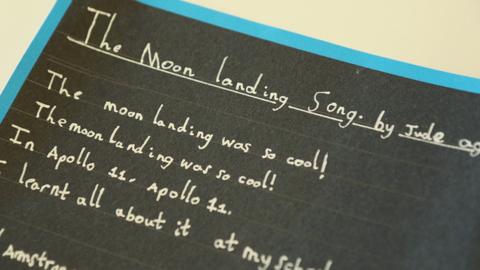 The Moon landing Song. by Jude
The moon landing was so cool!
The moon landing was so cool!
In Apollo 11, Apollo 11.
learnt all about it at my